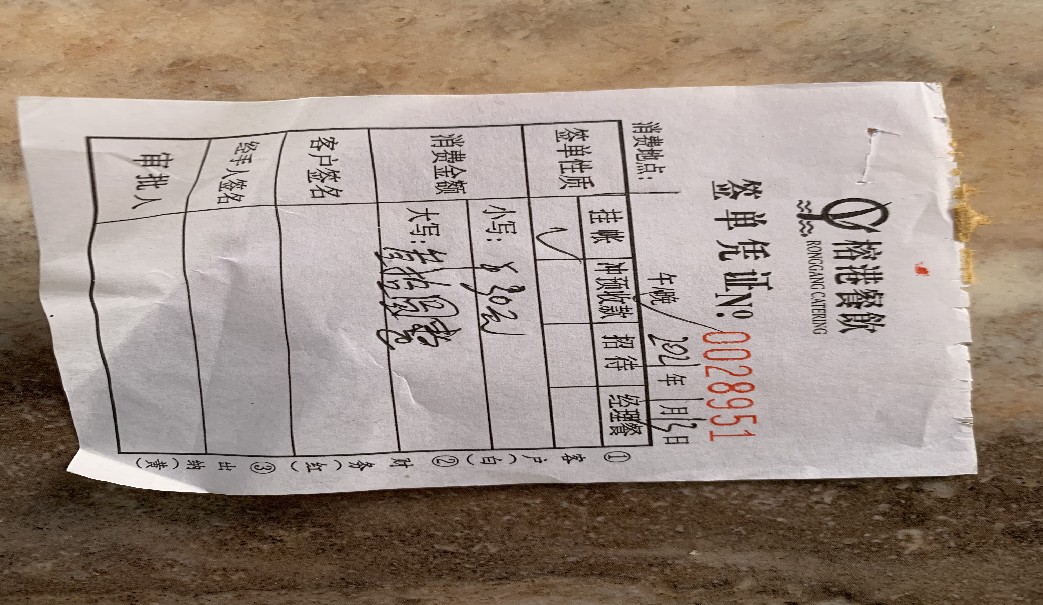 榕港餐飲
RONGGANG CATERING
签单凭证№ 0028951
消费地点: 午晚 2021年1月3日
签单性质 挂帐 冲预收款 招待 经理餐
✓
消费金额 小写: ¥
大写:
客户签名
经手人签名
审批人
①客户(白) ②财务(红) ③出纳(黄)